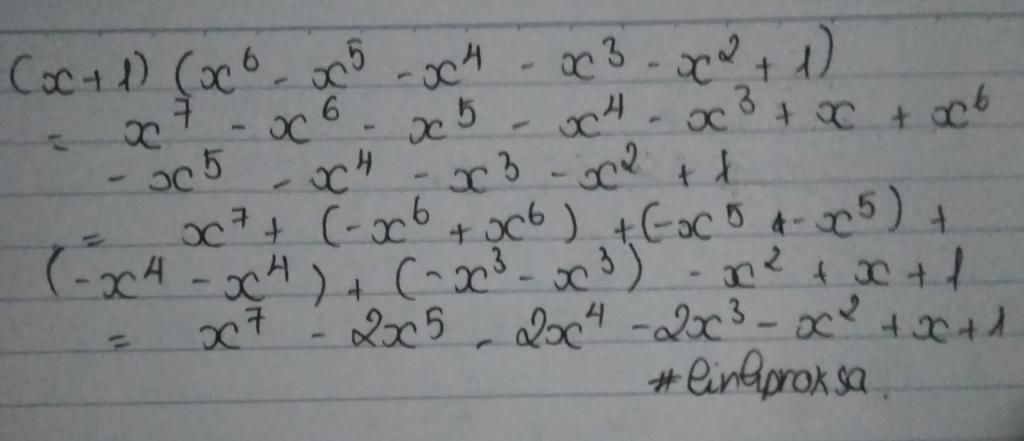 (x+1) (x⁶ - x⁵ - x⁴ - x³ - x² + 1)
= x⁷ - x⁶ - x⁵ - x⁴ - x³ + x + x⁶
- x⁵ - x⁴ - x³ - x² + 1
= x⁷ + (-x⁶ + x⁶) + (-x⁵ + -x⁵) +
(-x⁴ - x⁴) + (-x³ - x³) - x² + x + 1
= x⁷ - 2x⁵ - 2x⁴ - 2x³ - x² + x + 1